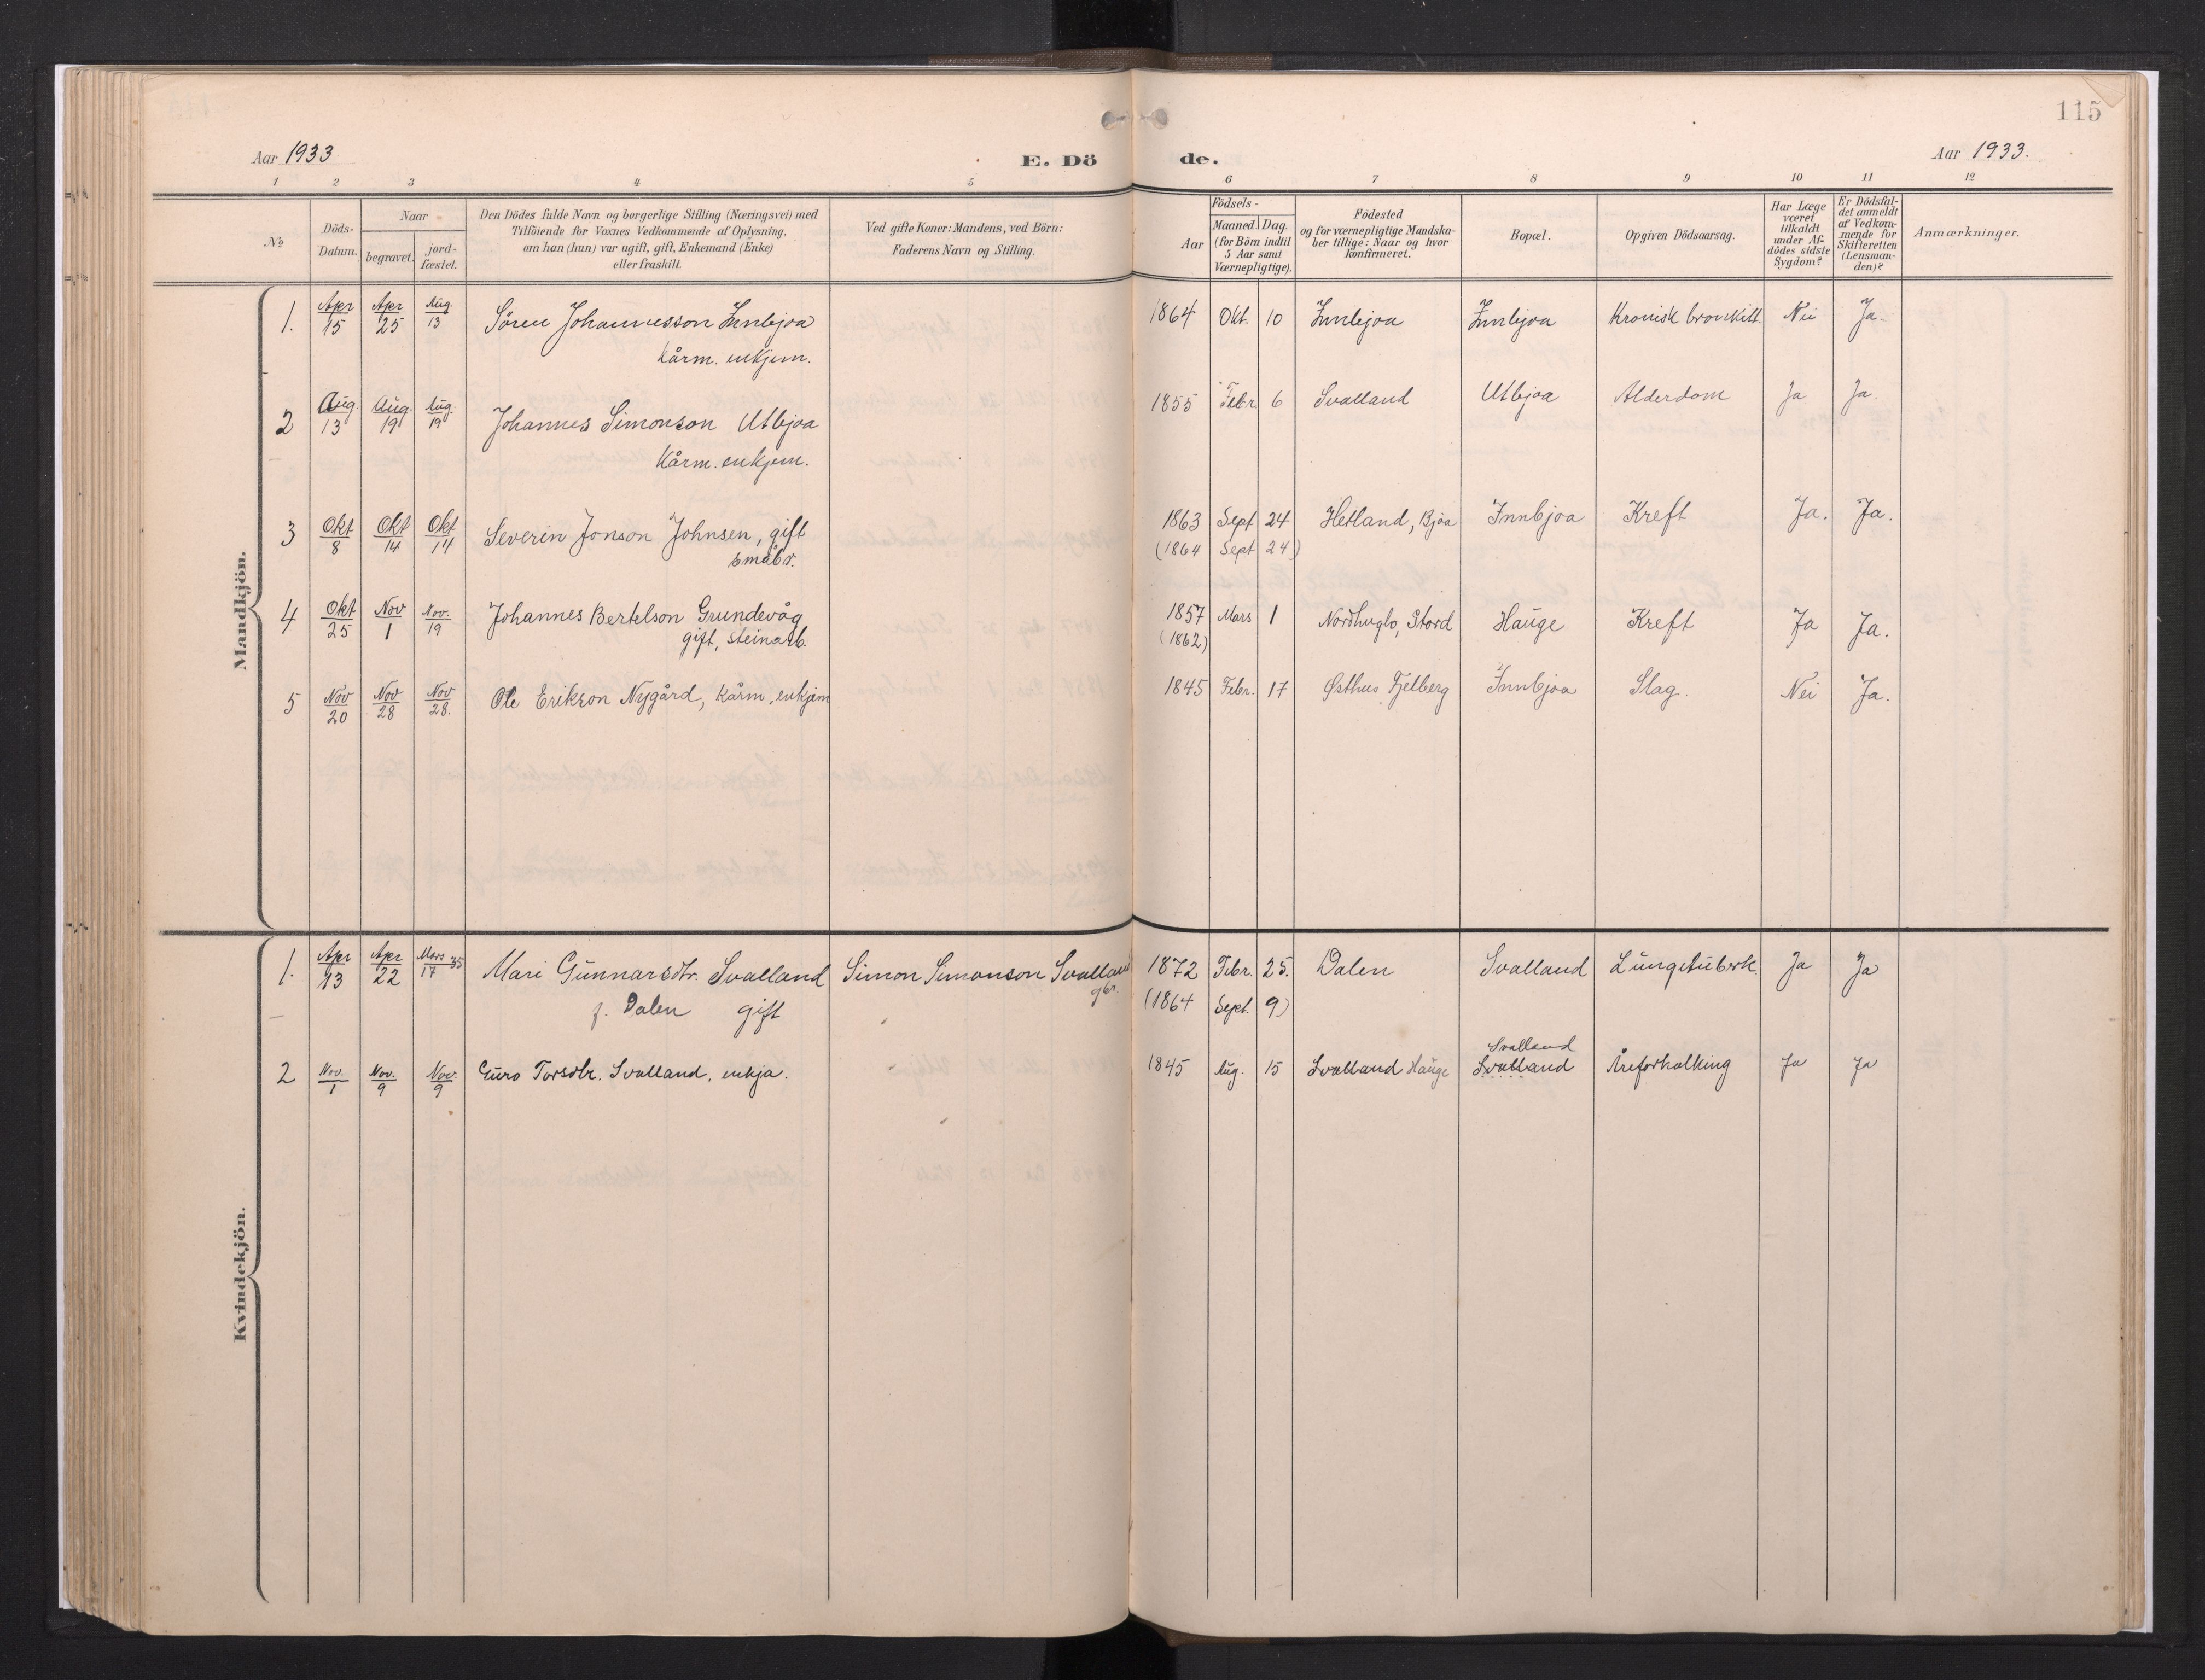 115
Aar 1933
E. Dö de.
Aar 1933.
1 2 3 4 5 6 7 8 9 10 11 12
No
Döds-
Datum.
Naar
begravet.
jord-
fæstet.
Den Dödes fulde Navn og borgerlige Stilling (Næringsvei) med
Tilföiende for Voxnes Vedkommende af Oplysning,
om han (hun) var ugift, gift, Enkemand (Enke)
eller fraskilt.
Ved gifte Koner: Mandens, ved Börn:
Faderens Navn og Stilling.
Födsels-
Aar
Maaned. Dag.
(for Börn indtil
5 Aar samt
Værnepligtige).
Födested
og for værnepligtige Mandska-
ber tillige: Naar og hvor
Konfirmeret.
Bopæl.
Opgiven Dödsaarsag.
Har Læge
været
tilkaldt
under Af-
dödes sidste
Sygdom?
Er Dödsfal-
det anmeldt
af Vedkom-
mende for
Skifteretten
(Lensman-
den)?
Anmærkninger.
Mandkjön.
1. Apr 15 Apr 25 Aug. 13 Sören Johannesson Innbjoa 1864 Okt. 10 Innbjoa Innbjoa Kronisk bronkitt Nei Ja.
kårm. enkjem.
2 Aug. 13 Aug. 19 Aug. 19 Johannes Simonson Utbjoa 1855 Febr 6 Svalland Utbjoa Alderdom Ja Ja.
Kårm. enkjem.
3 Okt 8 Okt 14 Okt 14 Severin Jonson Johnsen, gift 1863 Sept 24 Hetland, Bjoa Innbjoa Kreft Ja. Ja.
småbr. (1864 Sept 24)
4 Okt 25 Nov 1 Nov. 19 Johannes Bertelson Grundevåg 1857 Mars 1 Nordhuglo, Stord Hauge Kreft Ja Ja.
gift, steinarb. (1862)
5 Nov 20 Nov 28 Nov 28. Ole Erikson Nygård, kårm, enkjem 1845 Febr. 17 Østhus Fjelberg Innbjoa Slag. Nei Ja.
Kvindekjön.
1. Apr 13 Apr 22 Mars 17 35 Mari Gunnarsdtr. Svalland Simon Simonson Svalland 1872 Febr. 25. Dalen Svalland Lungetuberk. Ja Ja
f. Dalen gift gbr. (1864 Sept. 9)
Svalland
2 Nov. 1 Nov. 9 Nov. 9 Guro Torsdtr. Svalland, enkja. 1845 Aug. 15 Svalland Hauge Svalland Åreforkalking Ja Ja